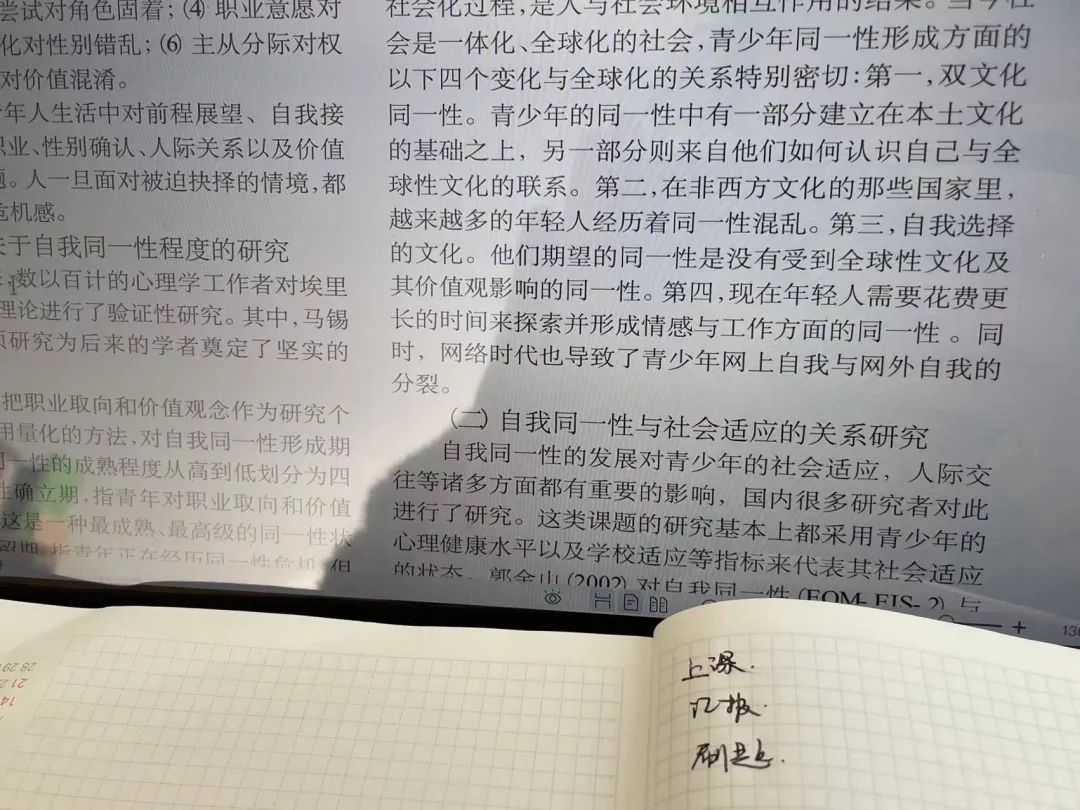 尝试对角色固着；(4) 职业意愿对
化对性别错乱；(6) 主从分际对权
对价值混淆。
年人生活中对前程展望、自我接
职业、性别确认、人际关系以及价值
题。人一旦面对被迫抉择的情境，都
危机感。
关于自我同一性程度的研究
数以百计的心理学工作者对埃里
理论进行了验证性研究。其中，马锡
项研究为后来的学者奠定了坚实的
把职业取向和价值观念作为研究个
用量化的方法，对自我同一性形成期
同一性的成熟程度从高到低划分为四
性确立期，指青年对职业取向和价值
这是一种最成熟、最高级的同一性状
指青年正在经历同一性危机，但
社会化过程，是人与社会环境相互作用的结果。当今社
会是一体化、全球化的社会，青少年同一性形成方面的
以下四个变化与全球化的关系特别密切：第一，双文化
同一性。青少年的同一性中有一部分建立在本土文化
的基础之上，另一部分则来自他们如何认识自己与全
球性文化的联系。第二，在非西方文化的那些国家里，
越来越多的年轻人经历着同一性混乱。第三，自我选择
的文化。他们期望的同一性是没有受到全球性文化及
其价值观影响的同一性。第四，现在年轻人需要花费更
长的时间来探索并形成情感与工作方面的同一性。同
时，网络时代也导致了青少年网上自我与网外自我的
分裂。
(二) 自我同一性与社会适应的关系研究
自我同一性的发展对青少年的社会适应，人际交
往等诸多方面都有重要的影响，国内很多研究者对此
进行了研究。这类课题的研究基本上都采用青少年的
心理健康水平以及学校适应等指标来代表其社会适应
的状态。郭金山(2002)对自我同一性(EOM-EIS-2)与
上课.
汇报.
刷题.
28 29
21 2
14